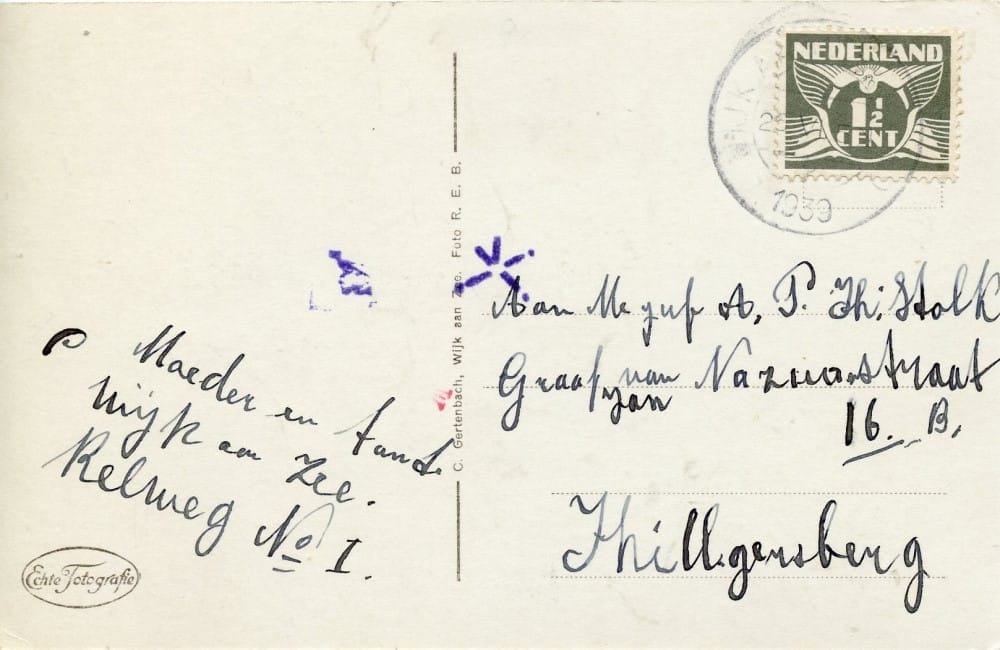 NEDERLAND
1 1/2
CENT
WIJK A
1939
C. Gertenbach, Wijk aan Zee. Foto R. E. B.
Aan Mejuf A. P. Th. Stolk
Graaf van Nazouwstraat
van
16. B.
Hillgersberg
Moeder en tante
Wijk aan Zee.
Relweg No I.
Echte Fotografie